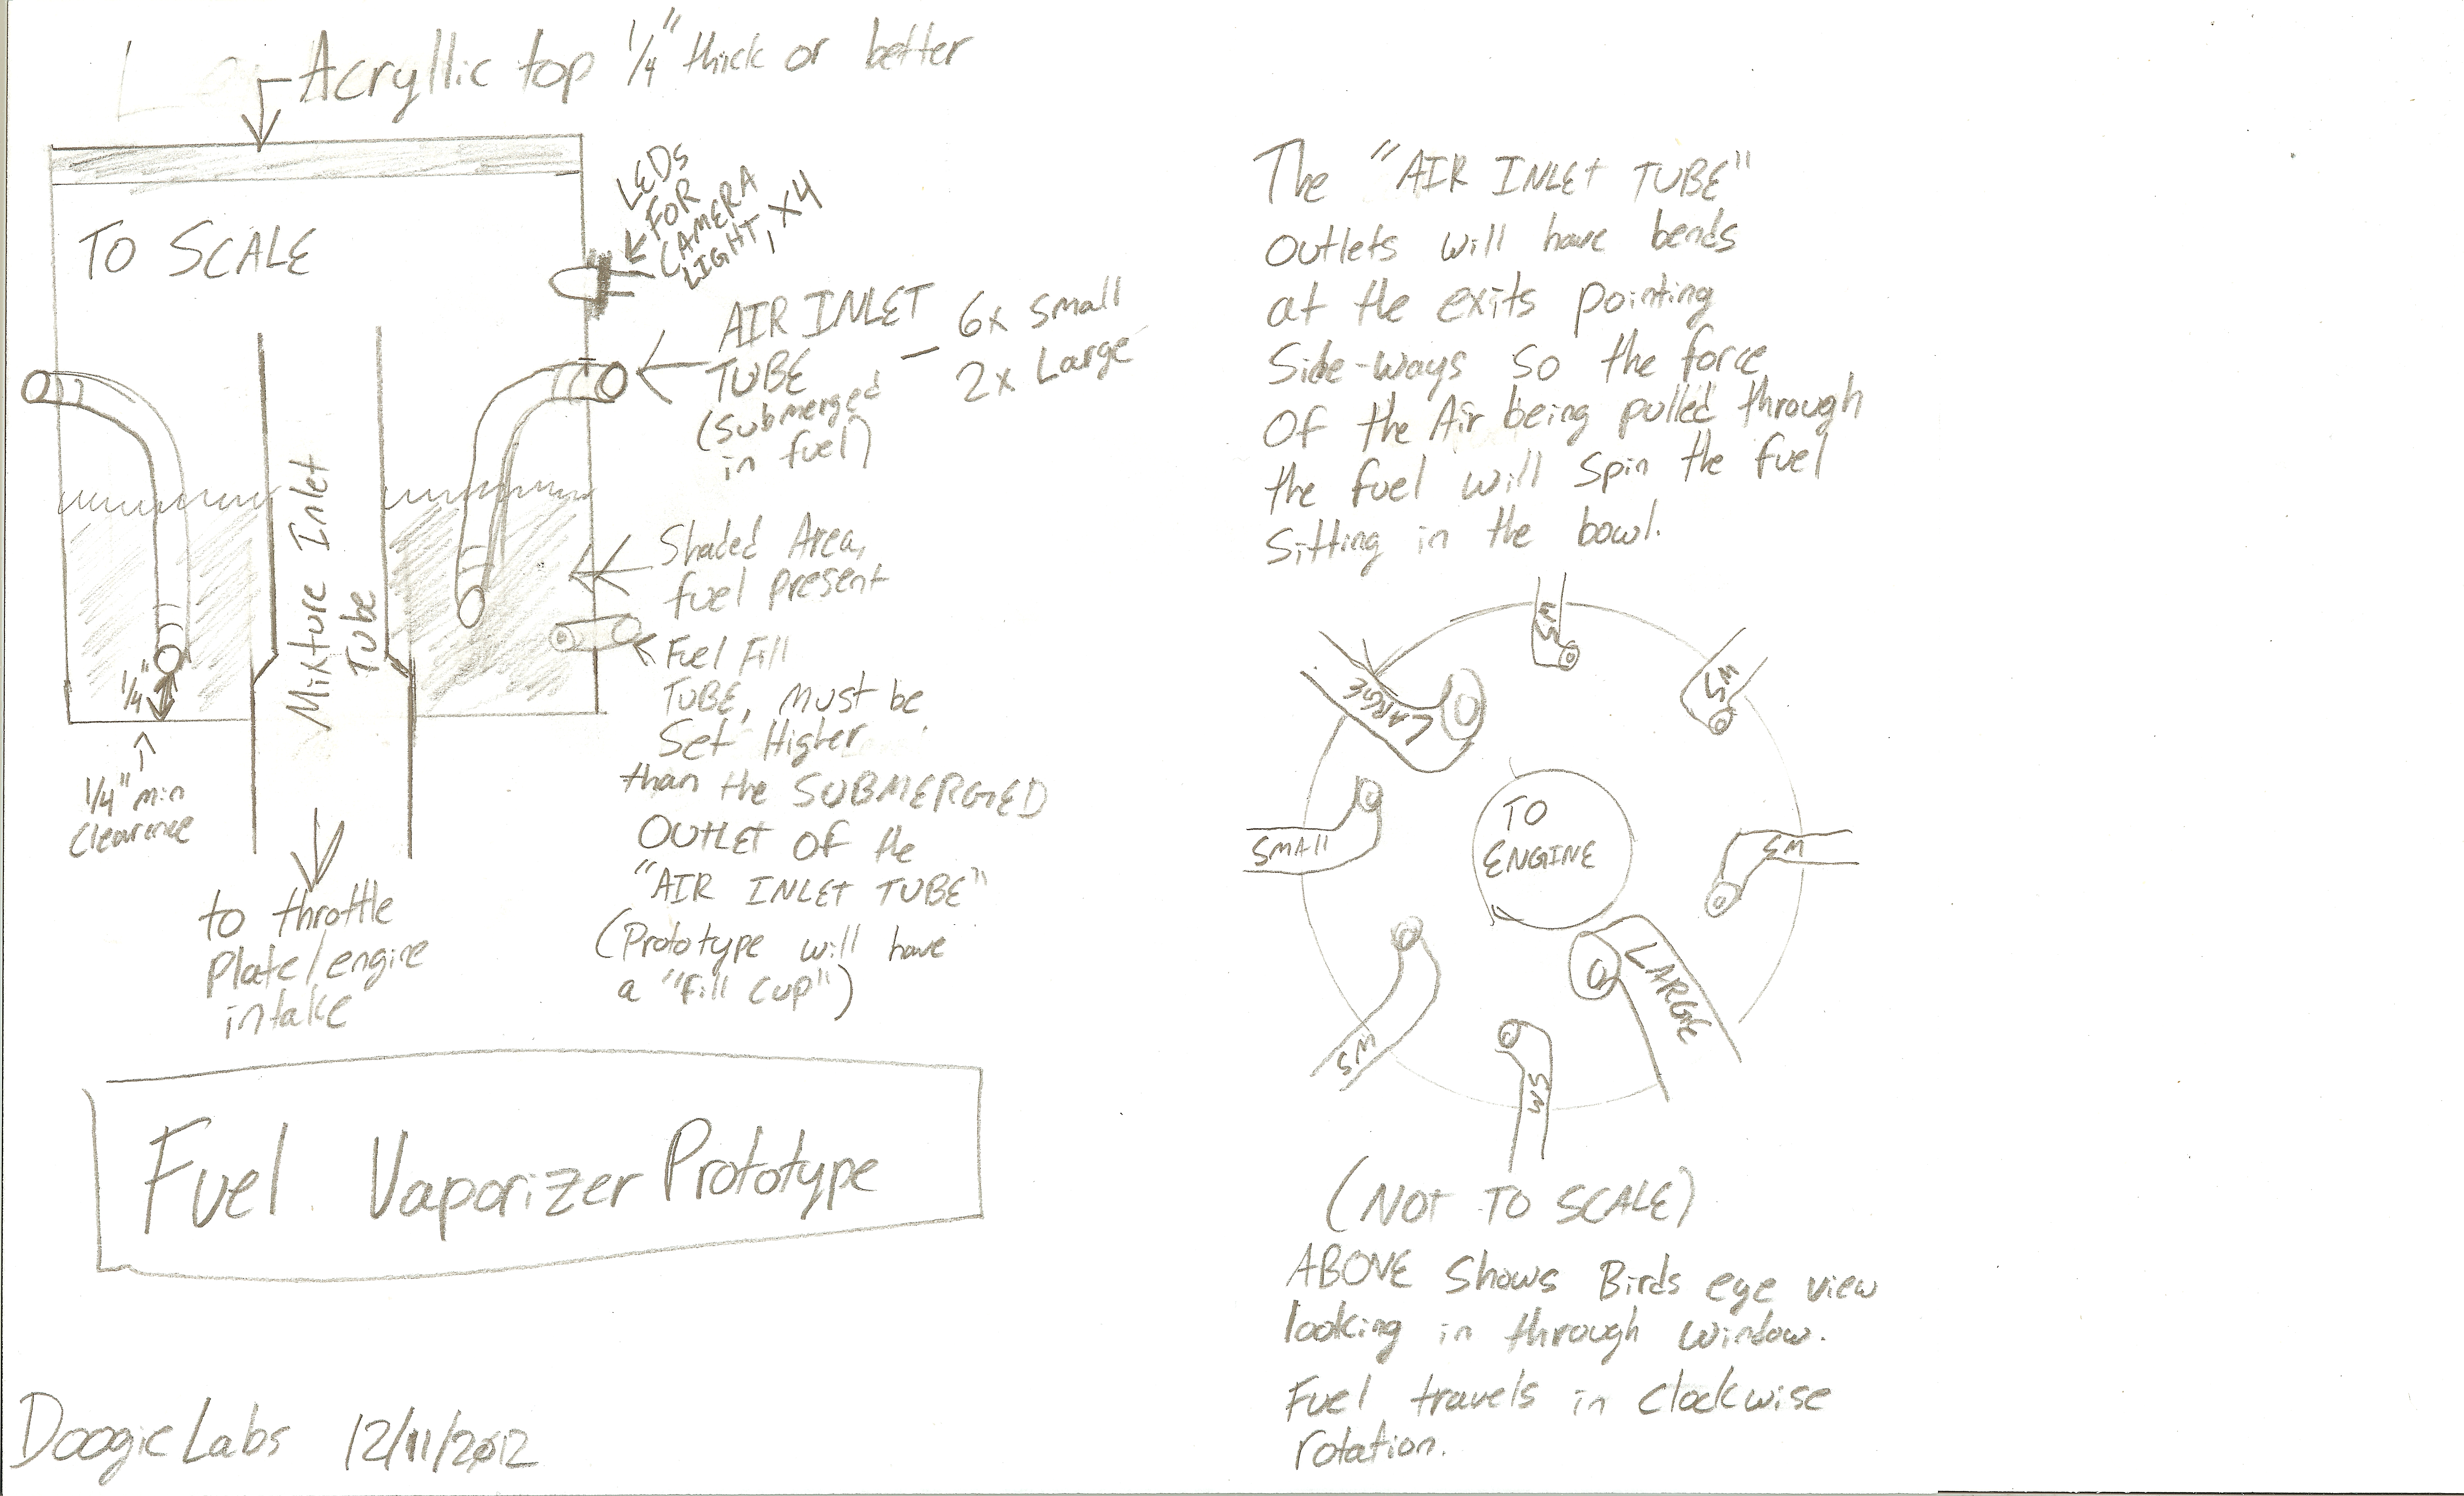 Acryllic top 1/4" thick or better
TO SCALE
LEDs
FOR
CAMERA
LIGHT, x4
AIR INLET
TUBE
(Submerged
in fuel)
- 6x Small
2x Large
Mixture Inlet
Tube
Shaded Area,
fuel present
Fuel Fill
TUBE, Must be
Set Higher
than the SUBMERGED
OUTLET OF the
"AIR INLET TUBE"
(Prototype will have
a "fill cup")
1/4"
1/4" min
Clearence
to throttle
plate/engine
intake
Fuel Vaporizer Prototype
Doogie Labs 12/11/2012
The "AIR INLET TUBE"
Outlets will have bends
at the exits pointing
Side-ways so the force
Of the Air being pulled through
the fuel will spin the fuel
Sitting in the bowl.
SM
SM
LARGE
SMAll
TO
ENGINE
SM
SM
LARGE
SM
(NOT TO SCALE)
ABOVE Shows Birds eye view
looking in through window.
Fuel travels in Clockwise
rotation.